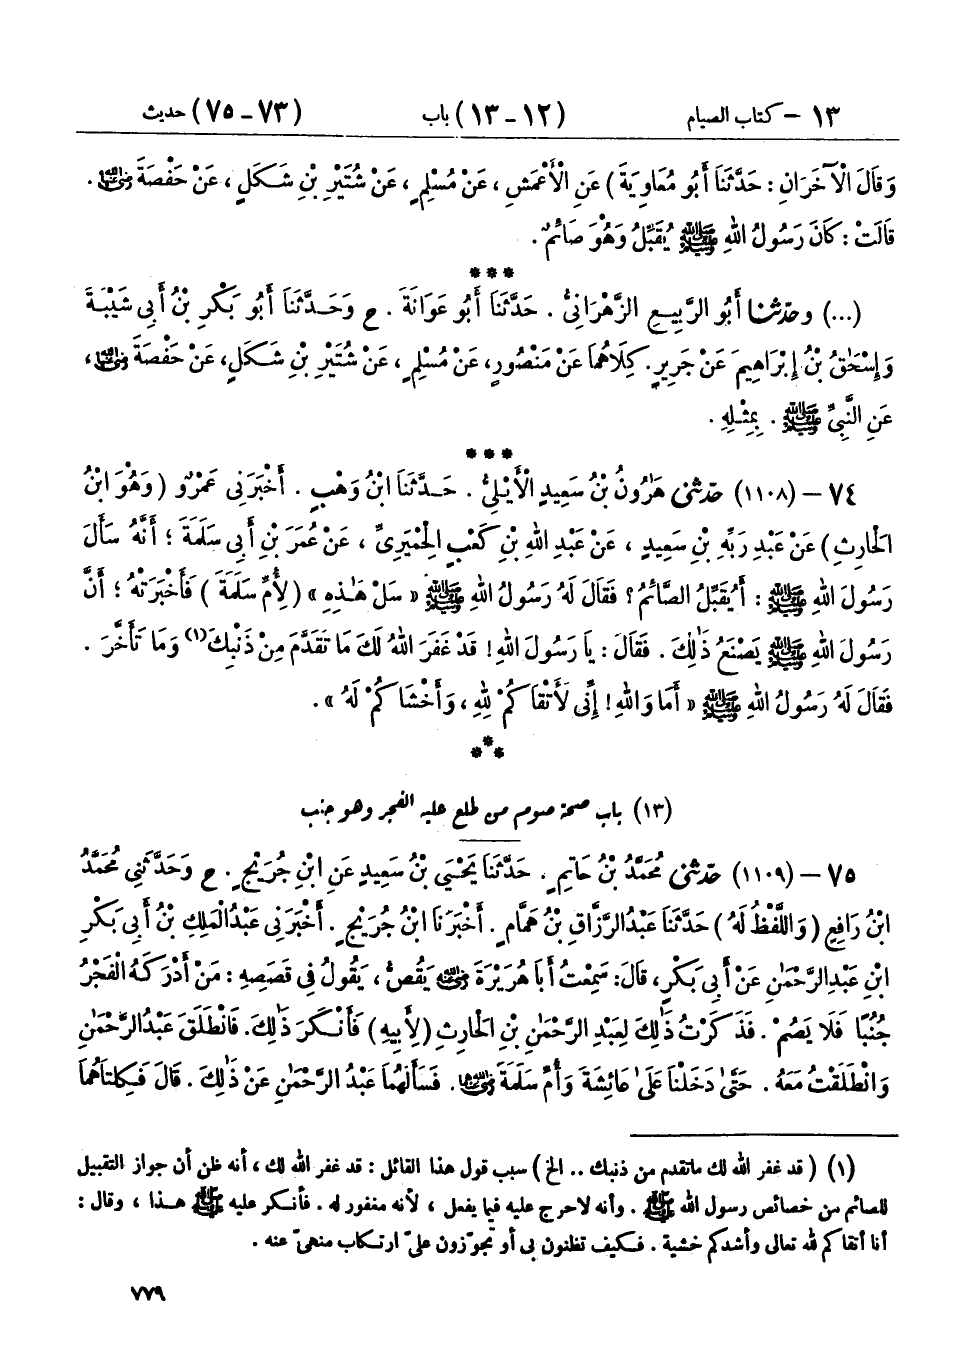 ١٣ – كتاب الصيام (١٢ - ١٣) باب (٧٣ - ٧٥) حديث
وَقَالَ الْآخَرَانِ : حَدَّثَنَا أَبُو مُعَاوِيَةَ ) عَنِ الْأَعْمَشِ ، عَنْ مُسْلِمٍ ، عَنْ شُتَيْرِ بْنِ شَكَلٍ ، عَنْ حَفْصَةَ رضي الله عنها .
قَالَتْ : كَانَ رَسُولُ اللهِ ﷺ يُقَبِّلُ وَهُوَ صَائِمٌ .
***
(...) وحَدَّثَنَا أَبُو الرَّبِيعِ الزَّهْرَانِيُّ . حَدَّثَنَا أَبُو عَوَانَةَ . ح وَحَدَّثَنَا أَبُو بَكْرِ بْنُ أَبِي شَيْبَةَ
وَإِسْحَٰقُ بْنُ إِبْرَاهِيمَ عَنْ جَرِيرٍ. كِلَاهُمَا عَنْ مَنْصُورٍ، عَنْ مُسْلِمٍ ، عَنْ شُتَيْرِ بْنِ شَكَلٍ، عَنْ حَفْصَةَ رضي الله عنها ،
عَنِ النَّبِيِّ ﷺ . بِمِثْلِهِ .
***
٧٤ – (١١٠٨) حَدَّثَنِي هَٰرُونُ بْنُ سَعِيدٍ الْأَيْلِيُّ . حَدَّثَنَا ابْنُ وَهْبٍ . أَخْبَرَنِي عَمْرٌو ( وَهُوَ ابْنُ
الْحَارِثِ ) عَنْ عَبْدِ رَبِّهِ بْنِ سَعِيدٍ ، عَنْ عَبْدِ اللهِ بْنِ كَعْبٍ الْحِمْيَرِيِّ ، عَنْ عُمَرَ بْنِ أَبِي سَلَمَةَ ؛ أَنَّهُ سَأَلَ
رَسُولَ اللهِ ﷺ : أَيُقَبِّلُ الصَّائِمُ ؟ فَقَالَ لَهُ رَسُولُ اللهِ ﷺ « سَلْ هَٰذِهِ » ( لِأُمِّ سَلَمَةَ ) فَأَخْبَرَتْهُ ؛ أَنَّ
رَسُولَ اللهِ ﷺ يَصْنَعُ ذَٰلِكَ . فَقَالَ : يَا رَسُولَ اللهِ ! قَدْ غَفَرَ اللهُ لَكَ مَا تَقَدَّمَ مِنْ ذَنْبِكَ(١) وَمَا تَأَخَّرَ .
فَقَالَ لَهُ رَسُولُ اللهِ ﷺ « أَمَا وَاللهِ ! إِنِّي لَأَتْقَاكُمْ لِلهِ ، وَأَخْشَاكُمْ لَهُ » .
***
(١٣) باب صحة صوم من طلع عليه الفجر وهو جنب
٧٥ – (١١٠٩) حَدَّثَنِي مُحَمَّدُ بْنُ حَاتِمٍ . حَدَّثَنَا يَحْيَى بْنُ سَعِيدٍ عَنِ ابْنِ جُرَيْجٍ . ح وَحَدَّثَنِي مُحَمَّدُ
ابْنُ رَافِعٍ ( وَاللَّفْظُ لَهُ ) حَدَّثَنَا عَبْدُ الرَّزَّاقِ بْنُ هَمَّامٍ . أَخْبَرَنَا ابْنُ جُرَيْجٍ . أَخْبَرَنِي عَبْدُ الْمَلِكِ بْنُ أَبِي بَكْرِ
ابْنِ عَبْدِ الرَّحْمَٰنِ عَنْ أَبِي بَكْرٍ، قَالَ: سَمِعْتُ أَبَا هُرَيْرَةَ رضي الله عنه يَقُصُّ ، يَقُولُ فِي قَصَصِهِ : مَنْ أَدْرَكَهُ الْفَجْرُ
جُنُبًا فَلَا يَصُمْ . فَذَكَرْتُ ذَٰلِكَ لِعَبْدِ الرَّحْمَٰنِ بْنِ الْحَارِثِ ( لِأَبِيهِ ) فَأَنْكَرَ ذَٰلِكَ. فَانْطَلَقَ عَبْدُ الرَّحْمَٰنِ
وَانْطَلَقْتُ مَعَهُ . حَتَّىٰ دَخَلْنَا عَلَىٰ عَائِشَةَ وَأُمِّ سَلَمَةَ رضي الله عنهما . فَسَأَلَهُمَا عَبْدُ الرَّحْمَٰنِ عَنْ ذَٰلِكَ . قَالَ فَكِلْتَاهُمَا
(١) ( قد غفر الله لك ما تقدم من ذنبك .. الخ ) سبب قول هذا القائل : قد غفر الله لك ، أنه ظن أن جواز التقبيل
للصائم من خصائص رسول الله ﷺ . وأنه لا حرج عليه فيما يفعل ، لأنه مغفور له . فأنكر عليه ﷺ هذا ، وقال :
أنا أتقاكم لله تعالى وأشدكم خشية . فكيف تظنون بي أو تجوّزون عليّ ارتكاب منهيّ عنه .
٧٧٩